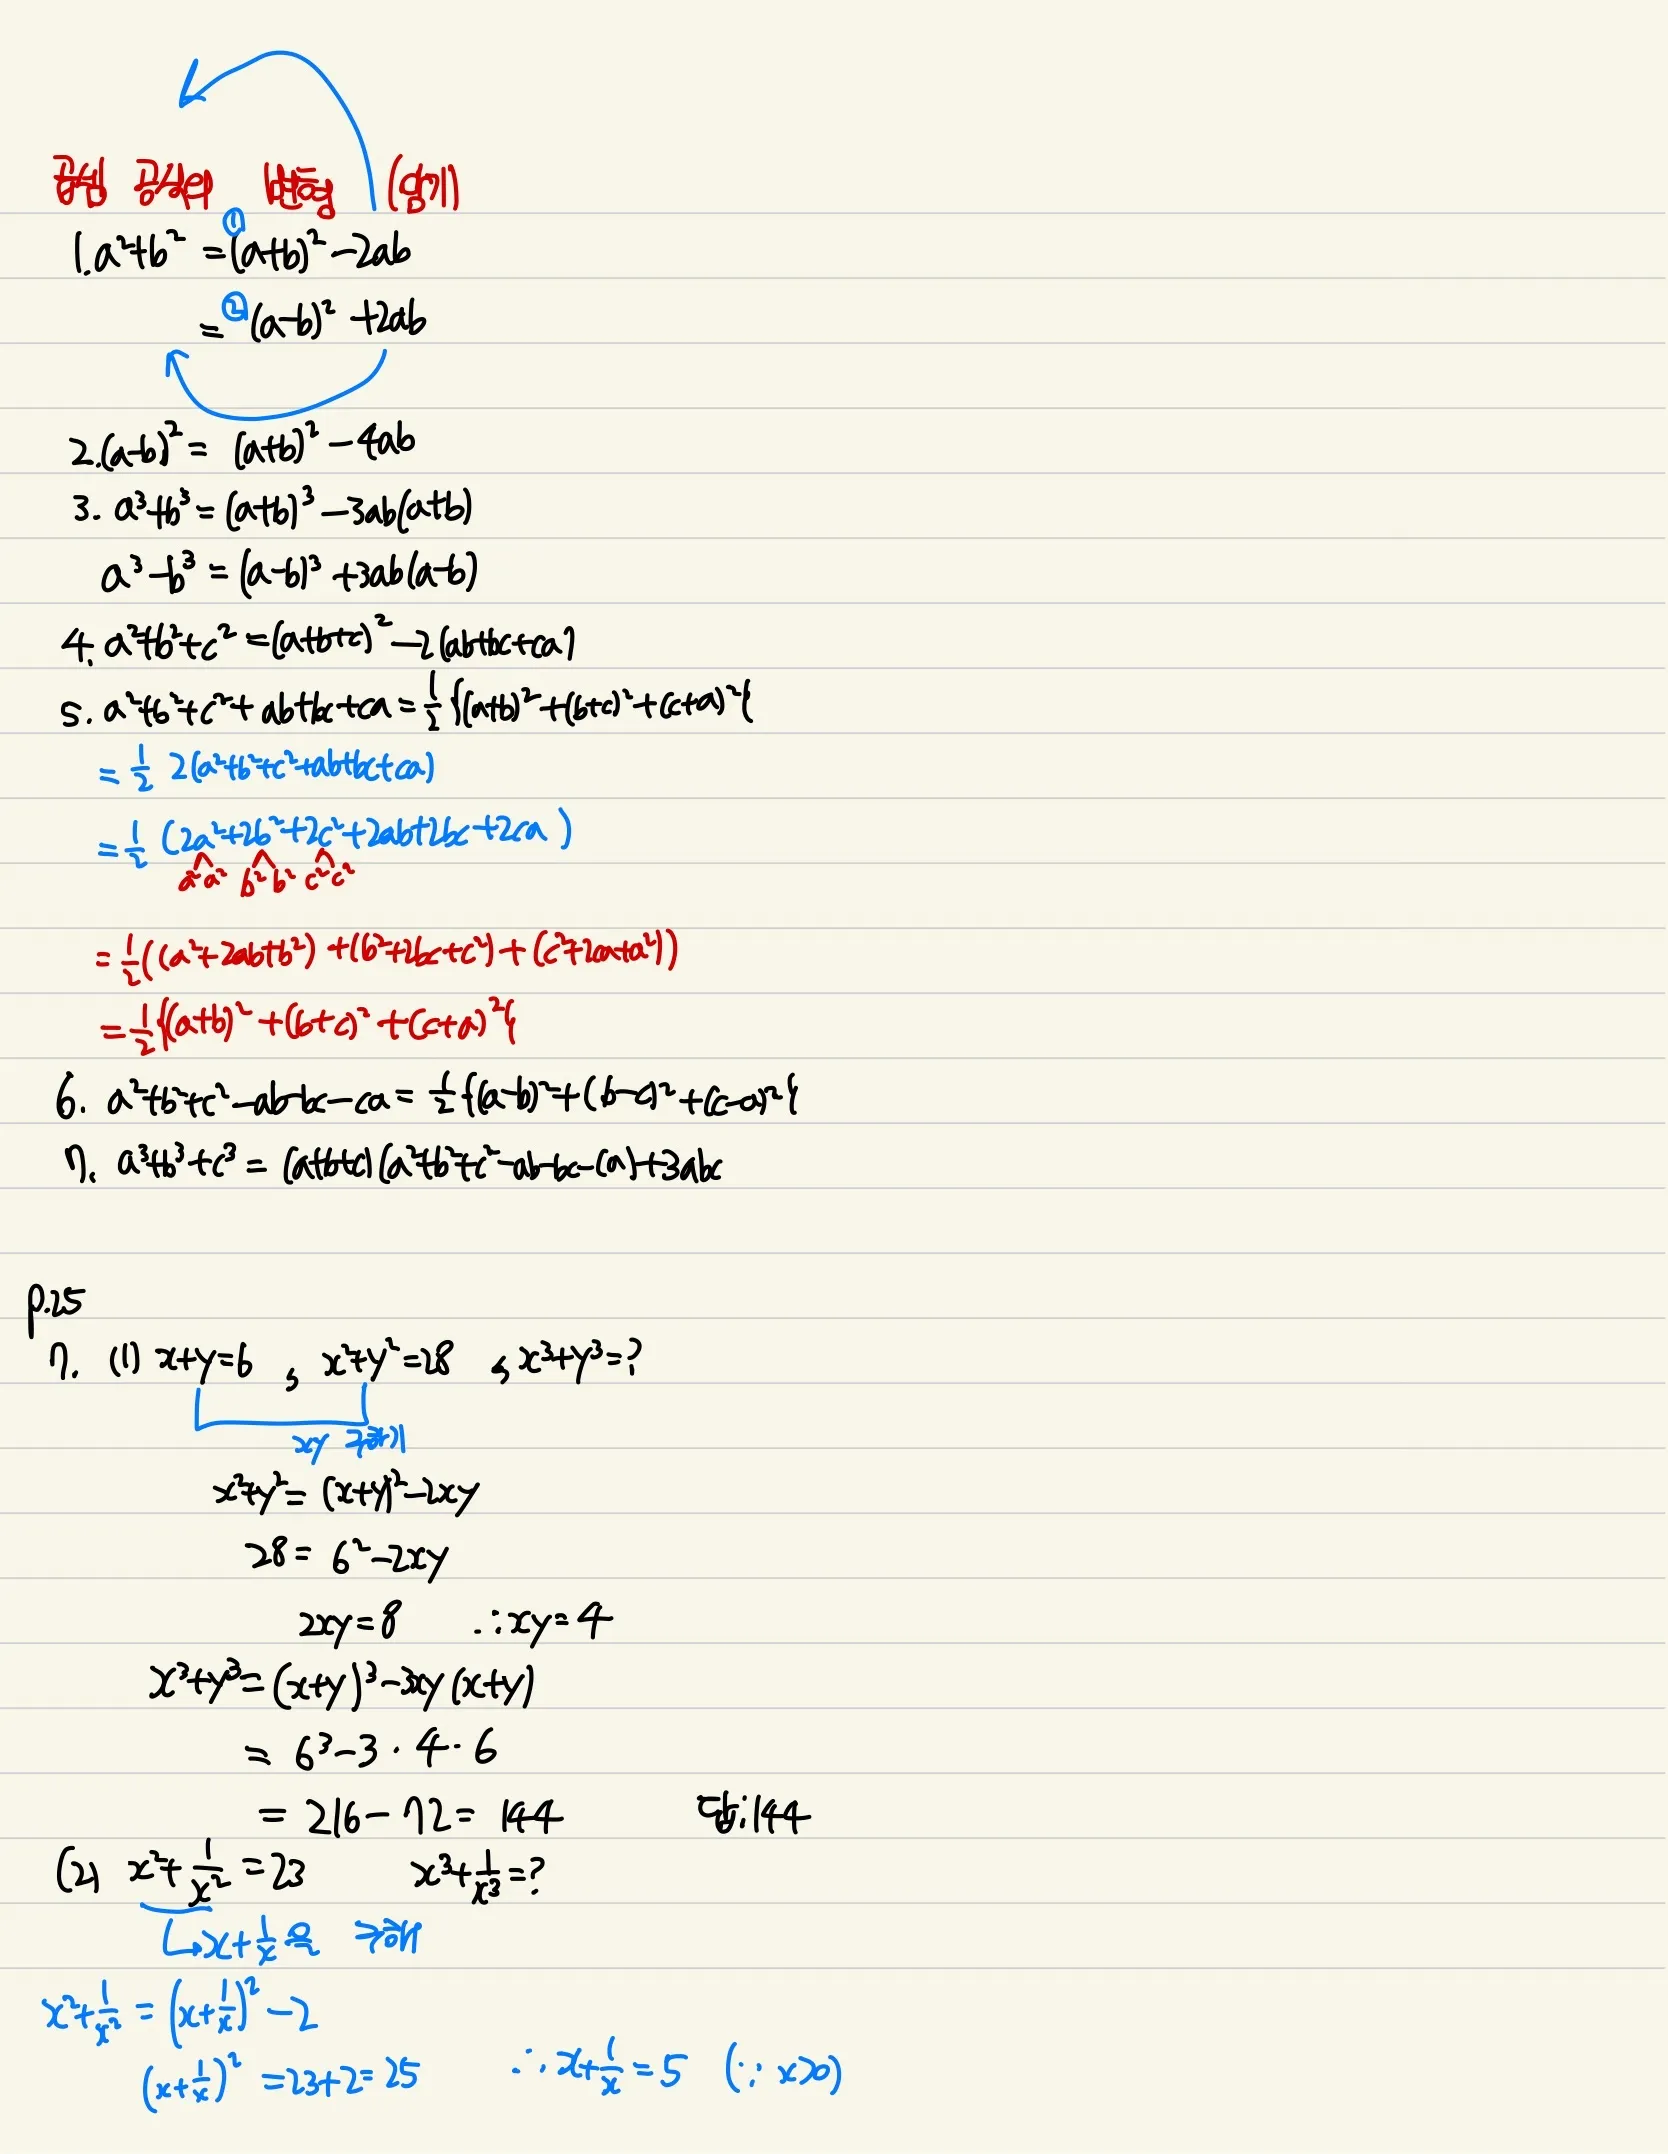 곱셈 공식의 변형 (암기)
1. a²+b² = ① (a+b)² - 2ab
= ② (a-b)² + 2ab
2. (a-b)² = (a+b)² - 4ab
3. a³+b³ = (a+b)³ - 3ab(a+b)
a³-b³ = (a-b)³ + 3ab(a-b)
4. a²+b²+c² = (a+b+c)² - 2(ab+bc+ca)
5. a²+b²+c²+ab+bc+ca = 1/2 {(a+b)²+(b+c)²+(c+a)²}
= 1/2 2(a²+b²+c²+ab+bc+ca)
= 1/2 (2a²+2b²+2c²+2ab+2bc+2ca)
a² a² b² b² c² c²
= 1/2 ((a²+2ab+b²)+(b²+2bc+c²)+(c²+2ca+a²))
= 1/2 {(a+b)²+(b+c)²+(c+a)²}
6. a²+b²+c²-ab-bc-ca = 1/2 {(a-b)²+(b-c)²+(c-a)²}
7. a³+b³+c³ = (a+b+c)(a²+b²+c²-ab-bc-ca)+3abc
p.25
7. (1) x+y=6 , x²+y²=28 , x³+y³=?
xy 구하기
x²+y² = (x+y)²-2xy
28 = 6²-2xy
2xy=8 ∴xy=4
x³+y³ = (x+y)³-3xy(x+y)
= 6³-3·4·6
= 216-72 = 144 답:144
(2) x²+1/x² = 23 x³+1/x³ = ?
↳ x+1/x을 구해
x²+1/x² = (x+1/x)² - 2
(x+1/x)² = 23+2 = 25 ∴ x+1/x = 5 (∵ x>0)